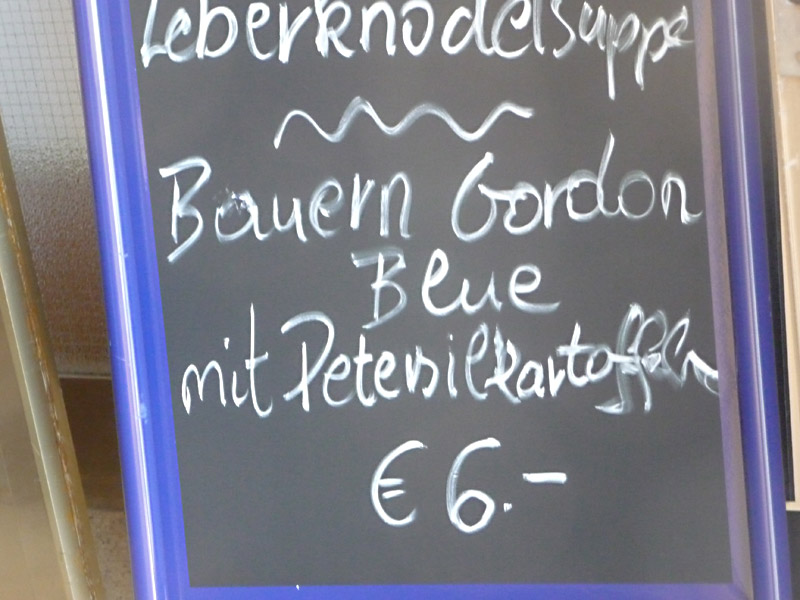 Leberknödelsuppe
Bauern Gordon
Blue
mit Petersilkartoffeln
€ 6.-